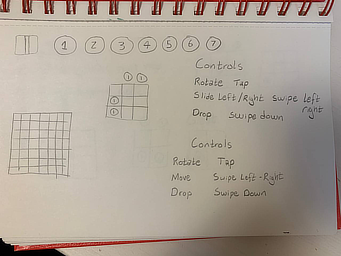 1 2 3 4 5 6 7
Controls
1 1
Rotate Tap
Slide Left/Right Swipe left right
1
Drop Swipe down
1
Controls
Rotate Tap
Move Swipe Left-Right
Drop Swipe Down